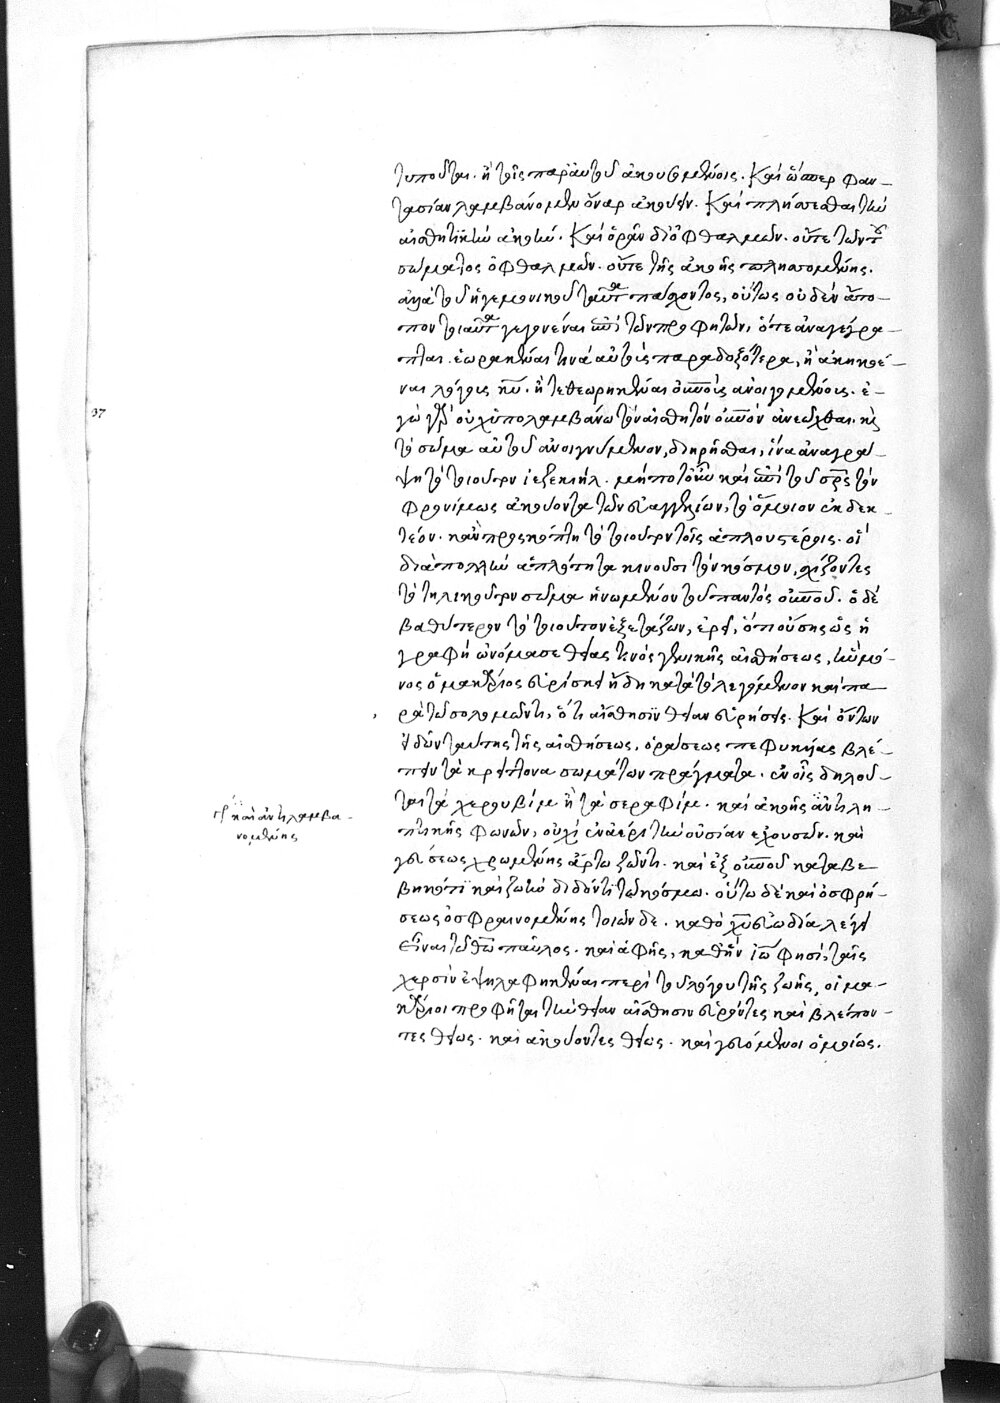 τυποῦται. ἢ τοῖς παρ' αὐτοῦ ἀκουομένοις. Καὶ ὥσπερ φαν-
τασίαν λαμβάνομεν ὄναρ ἀκούειν. Καὶ πλήσσεσθαι τὴν
αἰσθητικὴν ἀκοὴν. Καὶ ὁρᾶν δι' ὀφθαλμῶν. οὔτε τῶν τοῦ
σώματος ὀφθαλμῶν. οὔτε τῆς ἀκοῆς πλησσομένης.
ἀλλὰ τοῦ ἡγεμονικοῦ ταῦτα πάσχοντος, οὕτως οὐδὲν ἄτο-
πον τοιαῦτα γεγονέναι ἐπὶ τῶν προφητῶν, ὅτε ἀναγέγρα-
πται. ἑωρακέναι τινὰ αὐτοὺς παραδοξότερα, ἢ ἀκηκοέ-
ναι λόγους κυ. ἢ τεθεωρηκέναι οὐνοὺς ἀνοιγομένους. ἐ-
γὼ γὰρ οὐχ ὑπολαμβάνω τὸν αἰσθητὸν οὐνὸν ἀνεῶχθαι. κὶ
τὸ σῶμα αὐτοῦ ἀνοιγνύμενον, διηρῆσθαι, ἵνα ἀναγρά-
ψη τὸ τοιοῦτον ἰεζεκιήλ. μήποτ' οὖν καὶ ἐπὶ τοῦ σρς τὸν
φρονίμως ἀκούοντα τῶν εὐαγγελίων, τὸ ὅμοιον ἐκδεκ
τέον. κἂν προσκόπτη τὸ τοιοῦτον τοῖς ἁπλουστέροις. οἳ
διὰ πολλὴν ἁπλότητα κινοῦσι τὸν κόσμον, σχίζοντες
τὸ τηλικοῦτον σῶμα ἡνωμένον τοῦ παντὸς οὐνοῦ. ὁ δὲ
βαθύτερον τὸ τοιοῦτον ἐξετάζων, ἐρεῖ, ὅτι οὔσης ὡς ἡ
γραφὴ ὠνόμασε θείας τινὸς γενικῆς αἰσθήσεως, ἣν μό-
νος ὁ μακάριος εὑρίσκει ἤδη κατὰ τὸ λεγόμενον καὶ πα-
ρὰ τῶ σολομῶντι, ὅτι αἴσθησιν θείαν εὑρήσεις. Καὶ ὄντων
εἰδῶν ταύτης τῆς αἰσθήσεως, ὁράσεως πεφυκυίας βλέ-
πειν τὰ κρείττονα σωμάτων πράγματα. ἐν οἷς δηλοῦ-
ται τὰ χερουβὶμ ἢ τὰ σεραφίμ. καὶ ἀκοῆς ἀντιλη-
πτικῆς φωνῶν, οὐχὶ ἐν ἀέρι τὴν οὐσίαν ἐχουσῶν. καὶ
γεύσεως χρωμένης ἄρτω ζῶντι. καὶ ἐξ οὐνοῦ καταβε-
βηκότι καὶ ζωὴν διδόντι τῶ κόσμω. οὕτω δὲ καὶ ὀσφρή-
σεως ὀσφραινομένης τοιῶνδε. καθὸ χυ εὐωδία λέγει
εἶναι τῶ θω παῦλος. καὶ ἁφῆς, καθ' ἣν ιω φησὶ, ταῖς
χερσὶν ἐψηλαφηκέναι περὶ τοῦ λόγου τῆς ζωῆς, οἱ μα-
κάριοι προφῆται τὴν θείαν αἴσθησιν εὑρόντες καὶ βλέπον-
τες θείως. καὶ ἀκούοντες θείως. καὶ γευόμενοι ὁμοίως.
37
γρ καὶ ἀντιλαμβα-
νομένης